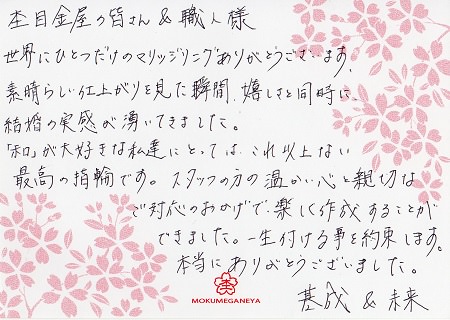 杢目金屋の皆さん & 職人様
世界にひとつだけのマリッジリングありがとうございます。
素晴らしい仕上がりを見た瞬間、嬉しさと同時に、
結婚の実感が湧いてきました。
「和」が大好きな私達にとっては、これ以上ない
最高の指輪です。スタッフの方の温かい心と親切な
ご対応のおかげで、楽しく作成することが
できました。一生付ける事を約束します。
本当にありがとうございました。
基成 & 未来
MOKUMEGANEYA